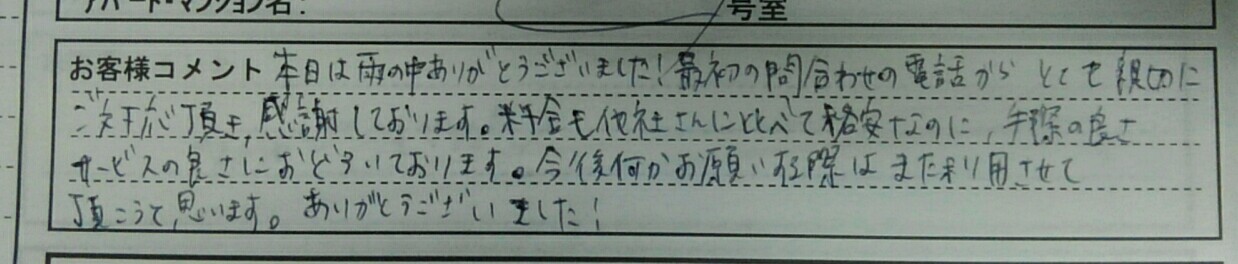 アパート・マンション名: 号室
お客様コメント 本日は雨の中ありがとうございました！最初の問合わせの電話からとても親切に
ご対応頂き、感謝しております。料金も他社さんにくらべて格安なのに、手際の良さ
サービスの良さにおどろいております。今後何かお願いする際はまた利用させて
頂こうと思います。ありがとうございました！